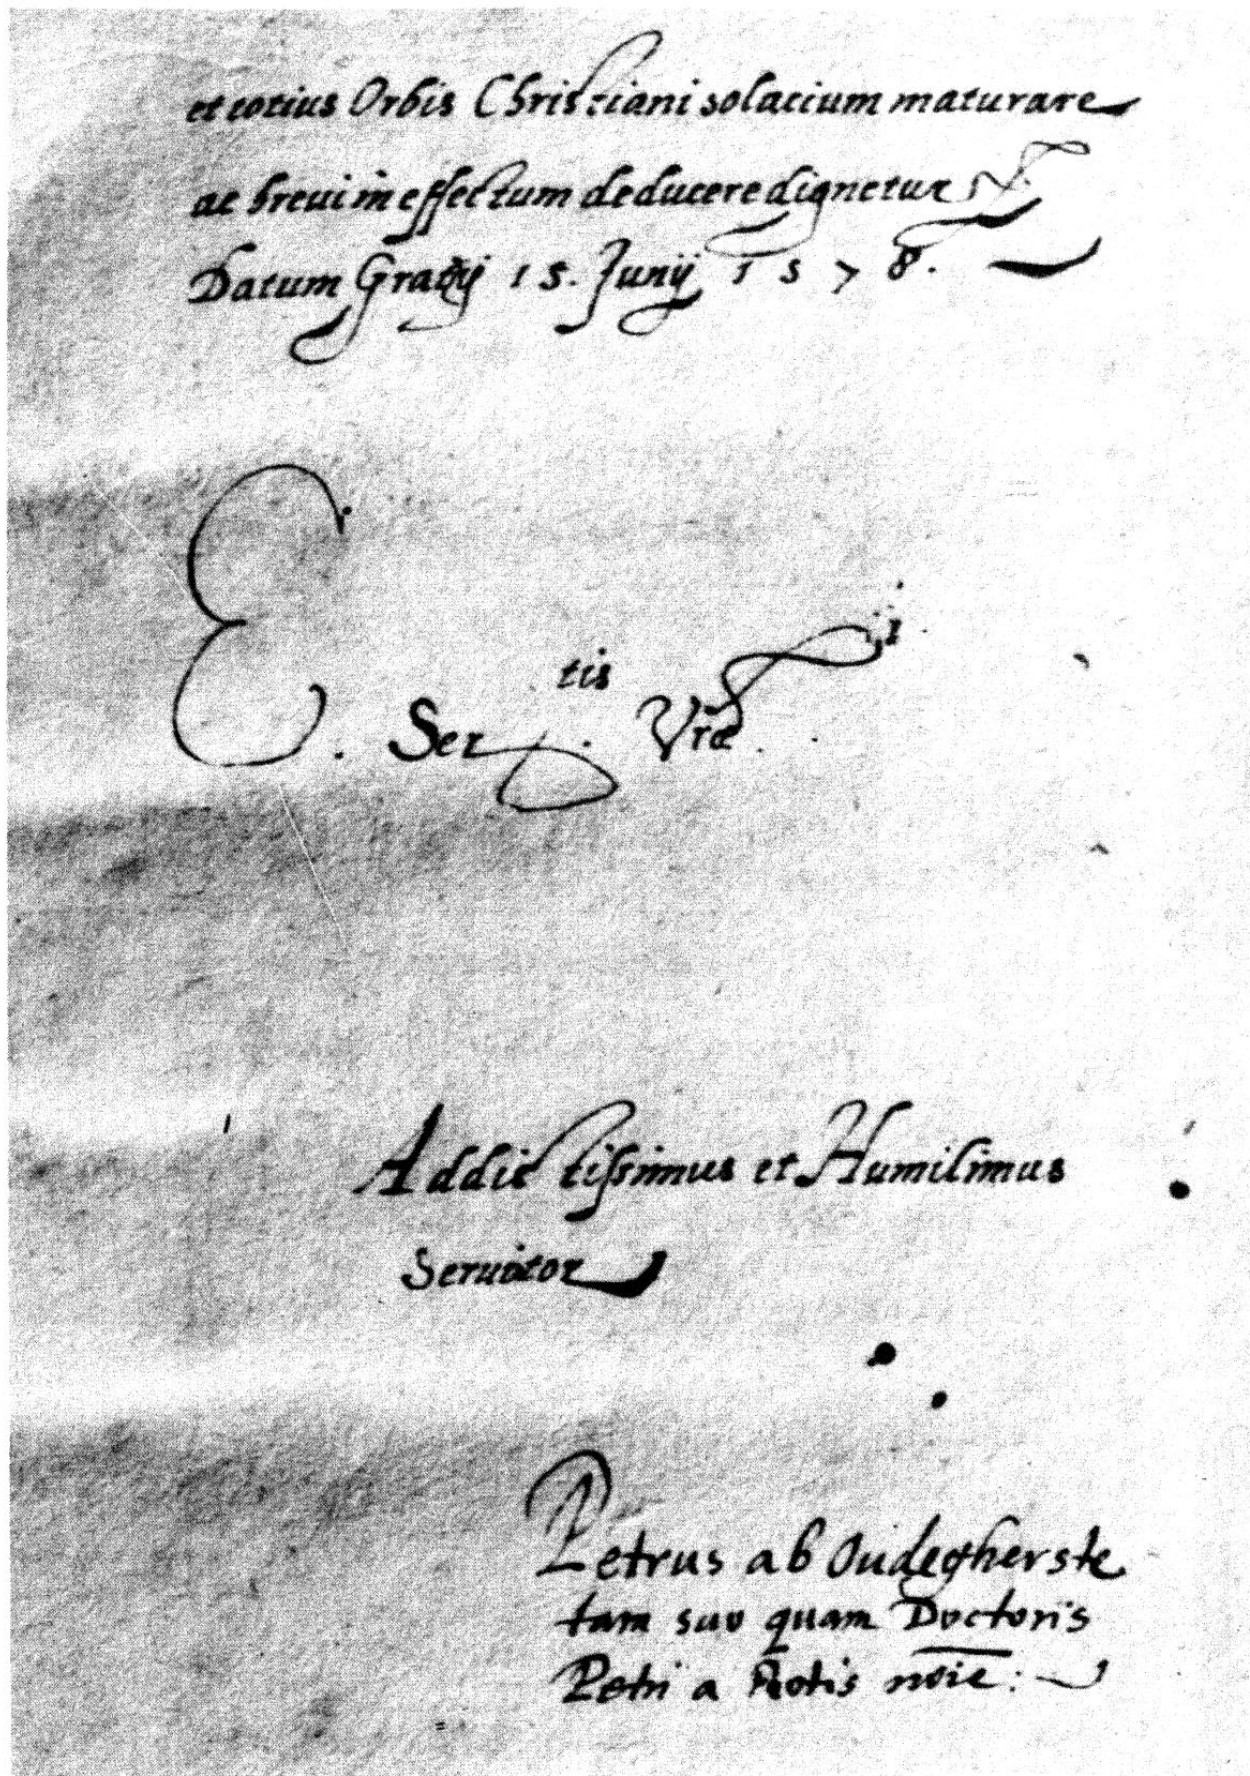 et totius Orbis Christiani solacium maturare
ac breui in effectum deducere dignetur
Datum Gratij 15. Junij 1578.
E. Ser.tis Vræ.
Addictissimus et Humilimus
Seruitor
Petrus ab Oudegherste
tam suo quam Doctoris
Petri a Rotis noie: